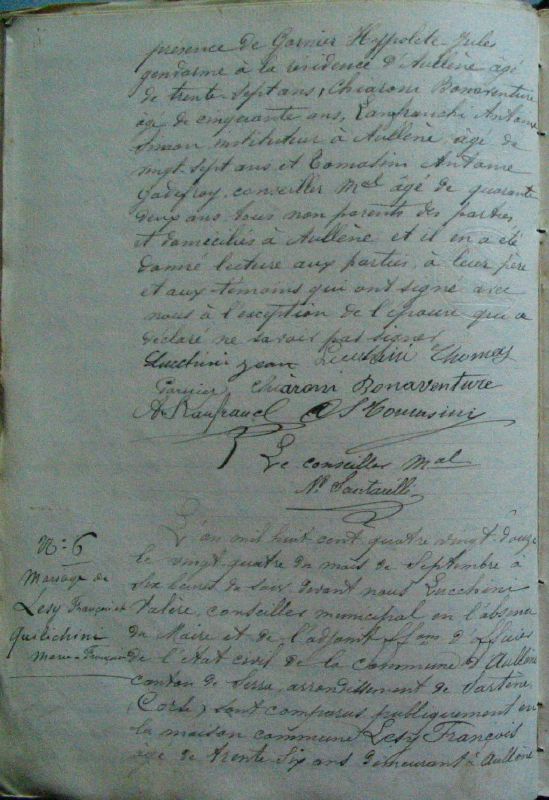 présence de Garnier Hyppolite Jules
gendarme à la résidence d'Aullène âgé
de trente sept ans, Chiaroni Bonaventure
âgé de cinquante ans, Lanfranchi Antoine
Simon instituteur à Aullène, âgé de
vingt sept ans et Tomasini Antoine
Godefroy, conseiller mal âgé de quarante
deux ans, tous non parents des parties
et domiciliés à Aullène et il en a été
donné lecture aux parties, à leur père
et aux témoins qui ont signé avec
nous à l'exception de l'épouse qui a
déclaré ne savoir pas signer
Lucchini jean Lucchini Thomas
Garnier Chiaroni Bonaventure
A Lanfranchi Tomasini
Le conseiller mal
Santarelli
N: 6
Mariage de
Lesy François et
Quilichini
Marie-Françoise
L'an mil huit cent quatre vingt douze
le vingt quatre du mois de Septembre à
six heures du soir devant nous Lucchini
Valère, conseiller municipal en l'absence
du Maire et de l'adjoint ffons d'officier
de l'Etat civil de la commune d'Aullène
canton de Serra, arrondissement de Sartène
(Corse) sont comparus publiquement en
la maison commune Lesy François
âgé de trente six ans demeurant à Aullène